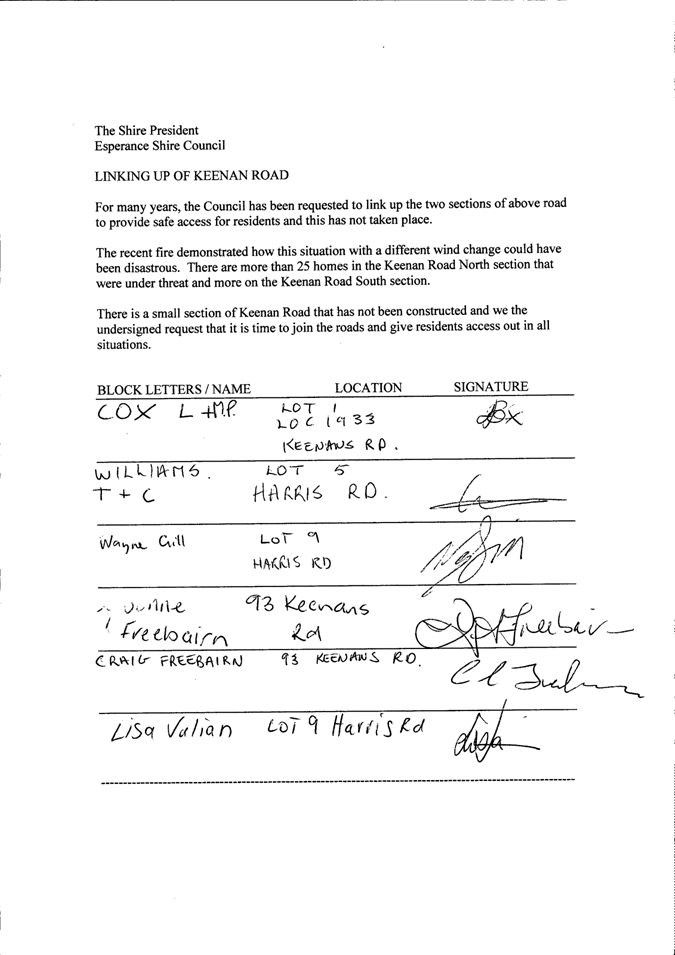 The Shire President
Esperance Shire Council
LINKING UP OF KEENAN ROAD
For many years, the Council has been requested to link up the two sections of above road
to provide safe access for residents and this has not taken place.
The recent fire demonstrated how this situation with a different wind change could have
been disastrous. There are more than 25 homes in the Keenan Road North section that
were under threat and more on the Keenan Road South section.
There is a small section of Keenan Road that has not been constructed and we the
undersigned request that it is time to join the roads and give residents access out in all
situations.
BLOCK LETTERS / NAME LOCATION SIGNATURE
COX L + M.P. LOT 1
LOC 1933
KEENANS RD.
WILLIAMS. LOT 5
T + C HARRIS RD.
Wayne Gill LOT 9
HARRIS RD
93 Keenans
Freebairn Rd Freebair
CRAIG FREEBAIRN 93 KEENANS RD.
Lisa Vulian LOT 9 Harris Rd Lisa